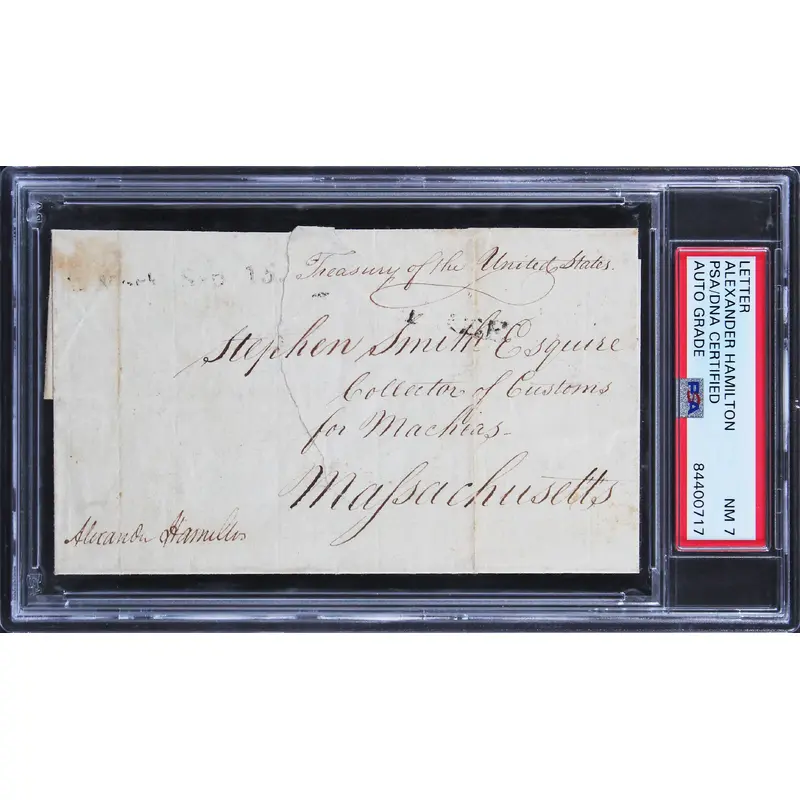 Treasury of the United States.
Stephen Smith Esquire
Collector of Customs
for Machias
Massachusetts
Alexander Hamilton
LETTER
ALEXANDER HAMILTON
PSA/DNA CERTIFIED
AUTO GRADE
NM 7
PSA
84400717